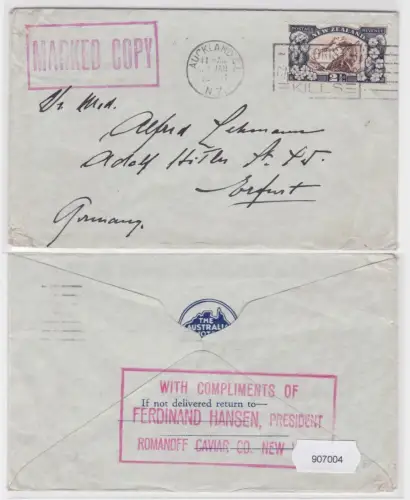 MARKED COPY
AUCKLAND
N.Z.
NEW ZEALAND
KILLS
Dr. Med.
Alfred Lehmann
Adolf Hitler St.
Erfurt
Germany.
THE
AUSTRALIA
WITH COMPLIMENTS OF
If not delivered return to—
FERDINAND HANSEN, PRESIDENT
ROMANOFF CAVIAR CO. NEW
907004